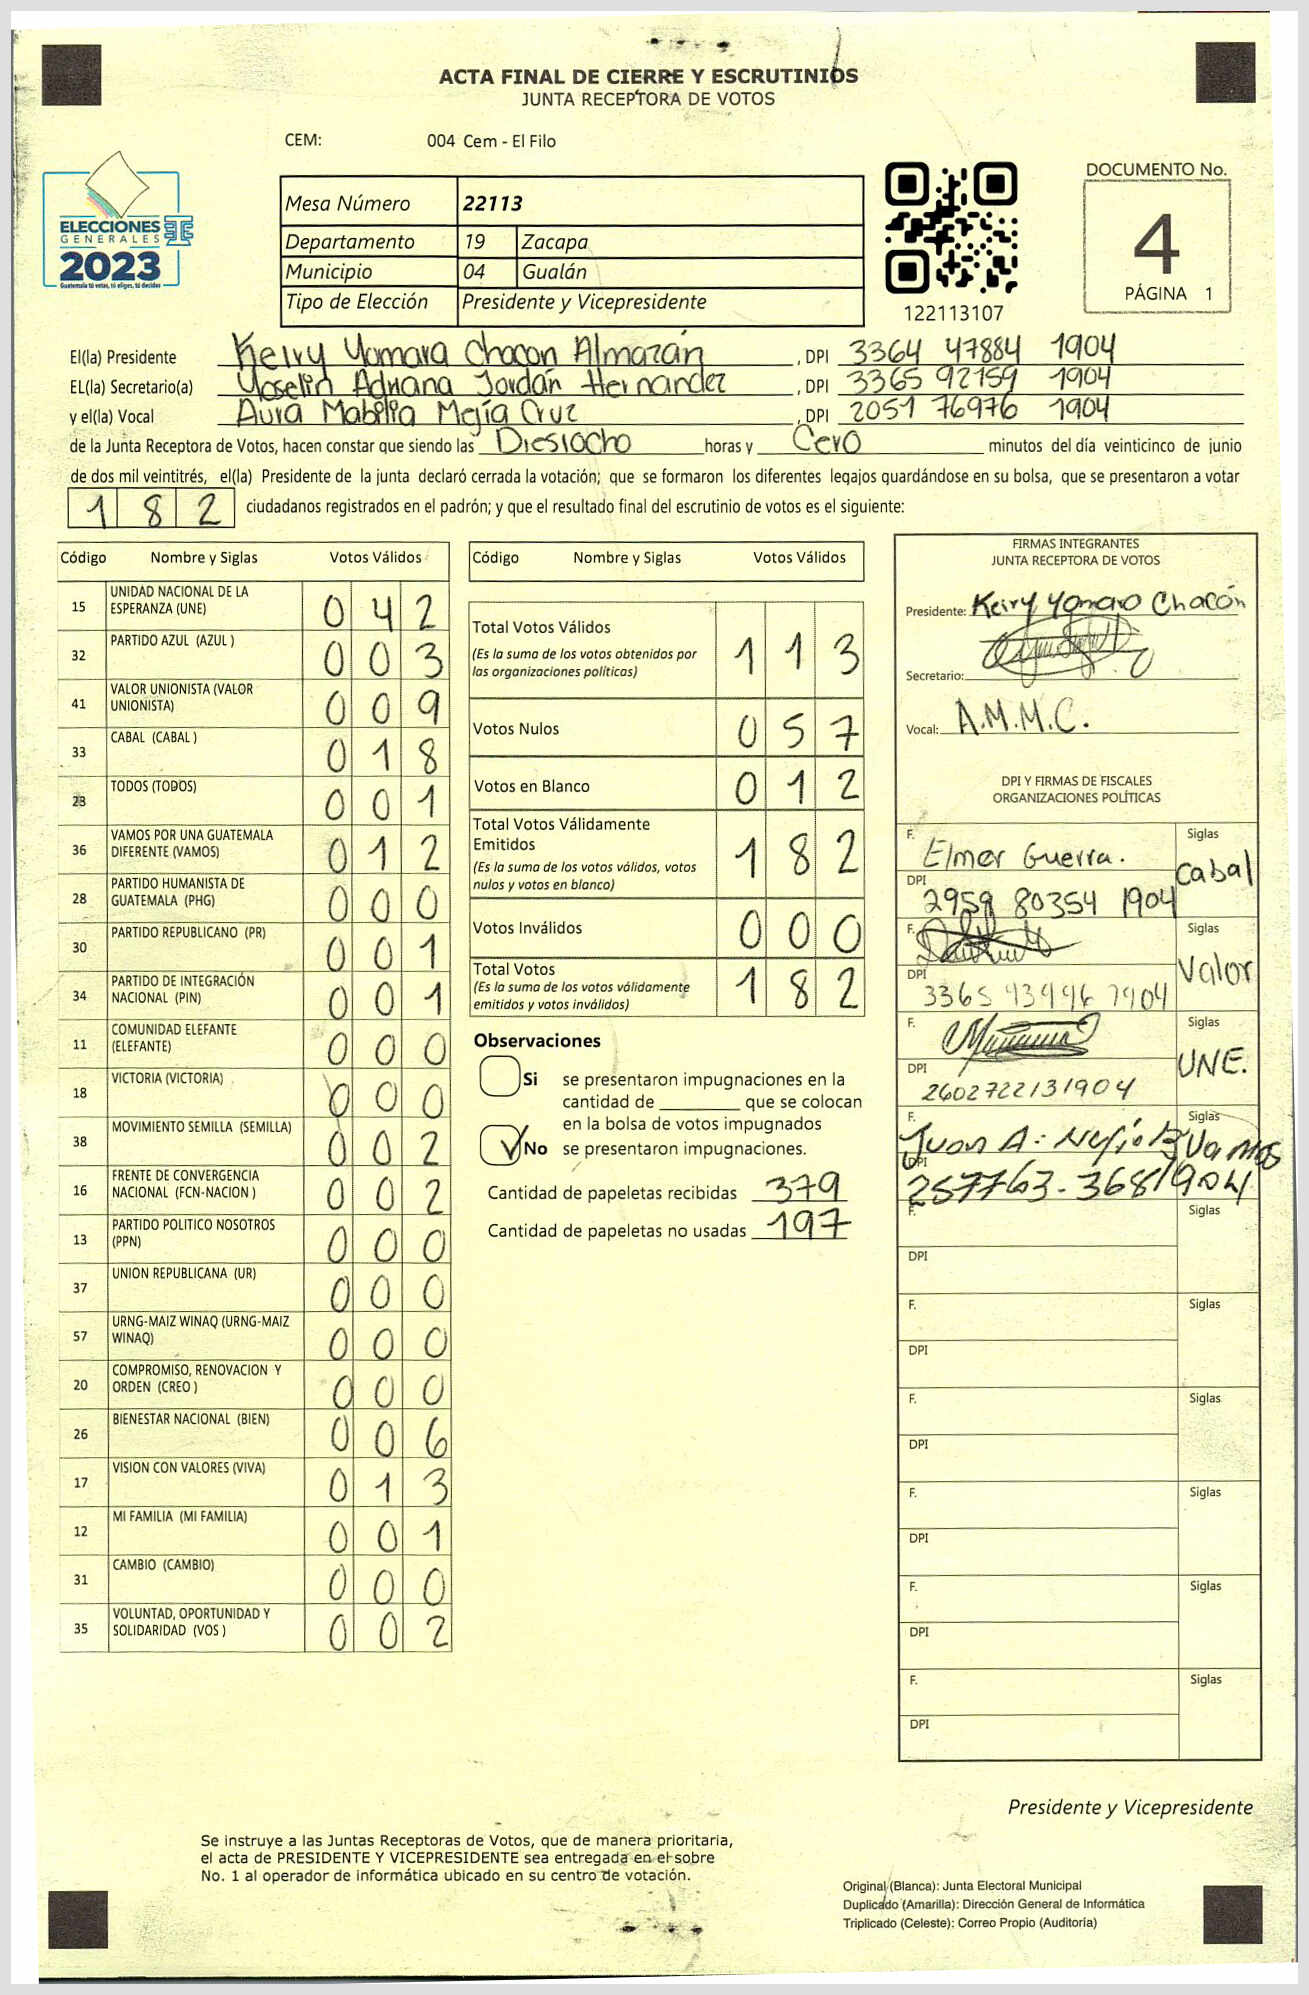 ACTA FINAL DE CIERRE Y ESCRUTINIOS
JUNTA RECEPTORA DE VOTOS
CEM: 004 Cem - El Filo
ELECCIONES
GENERALES
2023
Guatemala tú votas, tú eliges, tú decides
Mesa Número 22113
Departamento 19 Zacapa
Municipio 04 Gualán
Tipo de Elección Presidente y Vicepresidente
122113107
DOCUMENTO No.
4
PÁGINA 1
El(la) Presidente Keiry Yomara Chacon Almazán , DPI 3364 47884 1904
EL(la) Secretario(a) Yoselin Adriana Jordán Hernandez , DPI 3365 92159 1904
y el(la) Vocal Aura Mabilia Mejía Cruz , DPI 2051 76976 1904
de la Junta Receptora de Votos, hacen constar que siendo las Diesiocho horas y Cero minutos del día veinticinco de junio
de dos mil veintitrés, el(la) Presidente de la junta declaró cerrada la votación; que se formaron los diferentes legajos guardándose en su bolsa, que se presentaron a votar
182 ciudadanos registrados en el padrón; y que el resultado final del escrutinio de votos es el siguiente:
Código Nombre y Siglas Votos Válidos
15 UNIDAD NACIONAL DE LA ESPERANZA (UNE) 042
32 PARTIDO AZUL (AZUL ) 003
41 VALOR UNIONISTA (VALOR UNIONISTA) 009
33 CABAL (CABAL ) 018
23 TODOS (TODOS) 001
36 VAMOS POR UNA GUATEMALA DIFERENTE (VAMOS) 012
28 PARTIDO HUMANISTA DE GUATEMALA (PHG) 000
30 PARTIDO REPUBLICANO (PR) 001
34 PARTIDO DE INTEGRACIÓN NACIONAL (PIN) 001
11 COMUNIDAD ELEFANTE (ELEFANTE) 000
18 VICTORIA (VICTORIA) 000
38 MOVIMIENTO SEMILLA (SEMILLA) 002
16 FRENTE DE CONVERGENCIA NACIONAL (FCN-NACION ) 002
13 PARTIDO POLITICO NOSOTROS (PPN) 000
37 UNION REPUBLICANA (UR) 000
57 URNG-MAIZ WINAQ (URNG-MAIZ WINAQ) 000
20 COMPROMISO, RENOVACION Y ORDEN (CREO ) 000
26 BIENESTAR NACIONAL (BIEN) 006
17 VISION CON VALORES (VIVA) 013
12 MI FAMILIA (MI FAMILIA) 001
31 CAMBIO (CAMBIO) 000
35 VOLUNTAD, OPORTUNIDAD Y SOLIDARIDAD (VOS ) 002
Código Nombre y Siglas Votos Válidos
Total Votos Válidos 113
(Es la suma de los votos obtenidos por
las organizaciones políticas)
Votos Nulos 057
Votos en Blanco 012
Total Votos Válidamente
Emitidos 182
(Es la suma de los votos válidos, votos
nulos y votos en blanco)
Votos Inválidos 000
Total Votos 182
(Es la suma de los votos válidamente
emitidos y votos inválidos)
Observaciones
Si se presentaron impugnaciones en la
cantidad de ________ que se colocan
en la bolsa de votos impugnados
No se presentaron impugnaciones.
Cantidad de papeletas recibidas 379
Cantidad de papeletas no usadas 197
FIRMAS INTEGRANTES
JUNTA RECEPTORA DE VOTOS
Presidente: Keiry Yomara Chacón
Secretario:
Vocal: A.M.M.C.
DPI Y FIRMAS DE FISCALES
ORGANIZACIONES POLÍTICAS
F. Elmer Guerra. Siglas Cabal
DPI 2959 80354 1904
F. Siglas Valor
DPI 3365 1904
F. Siglas UNE.
DPI 2602722131904
F. Juan A. Siglas Vamos
DPI 257763-3681904
F. Siglas
DPI
F. Siglas
DPI
F. Siglas
DPI
F. Siglas
DPI
F. Siglas
DPI
F. Siglas
DPI
Presidente y Vicepresidente
Se instruye a las Juntas Receptoras de Votos, que de manera prioritaria,
el acta de PRESIDENTE Y VICEPRESIDENTE sea entregada en el sobre
No. 1 al operador de informática ubicado en su centro de votación.
Original (Blanca): Junta Electoral Municipal
Duplicado (Amarilla): Dirección General de Informática
Triplicado (Celeste): Correo Propio (Auditoría)